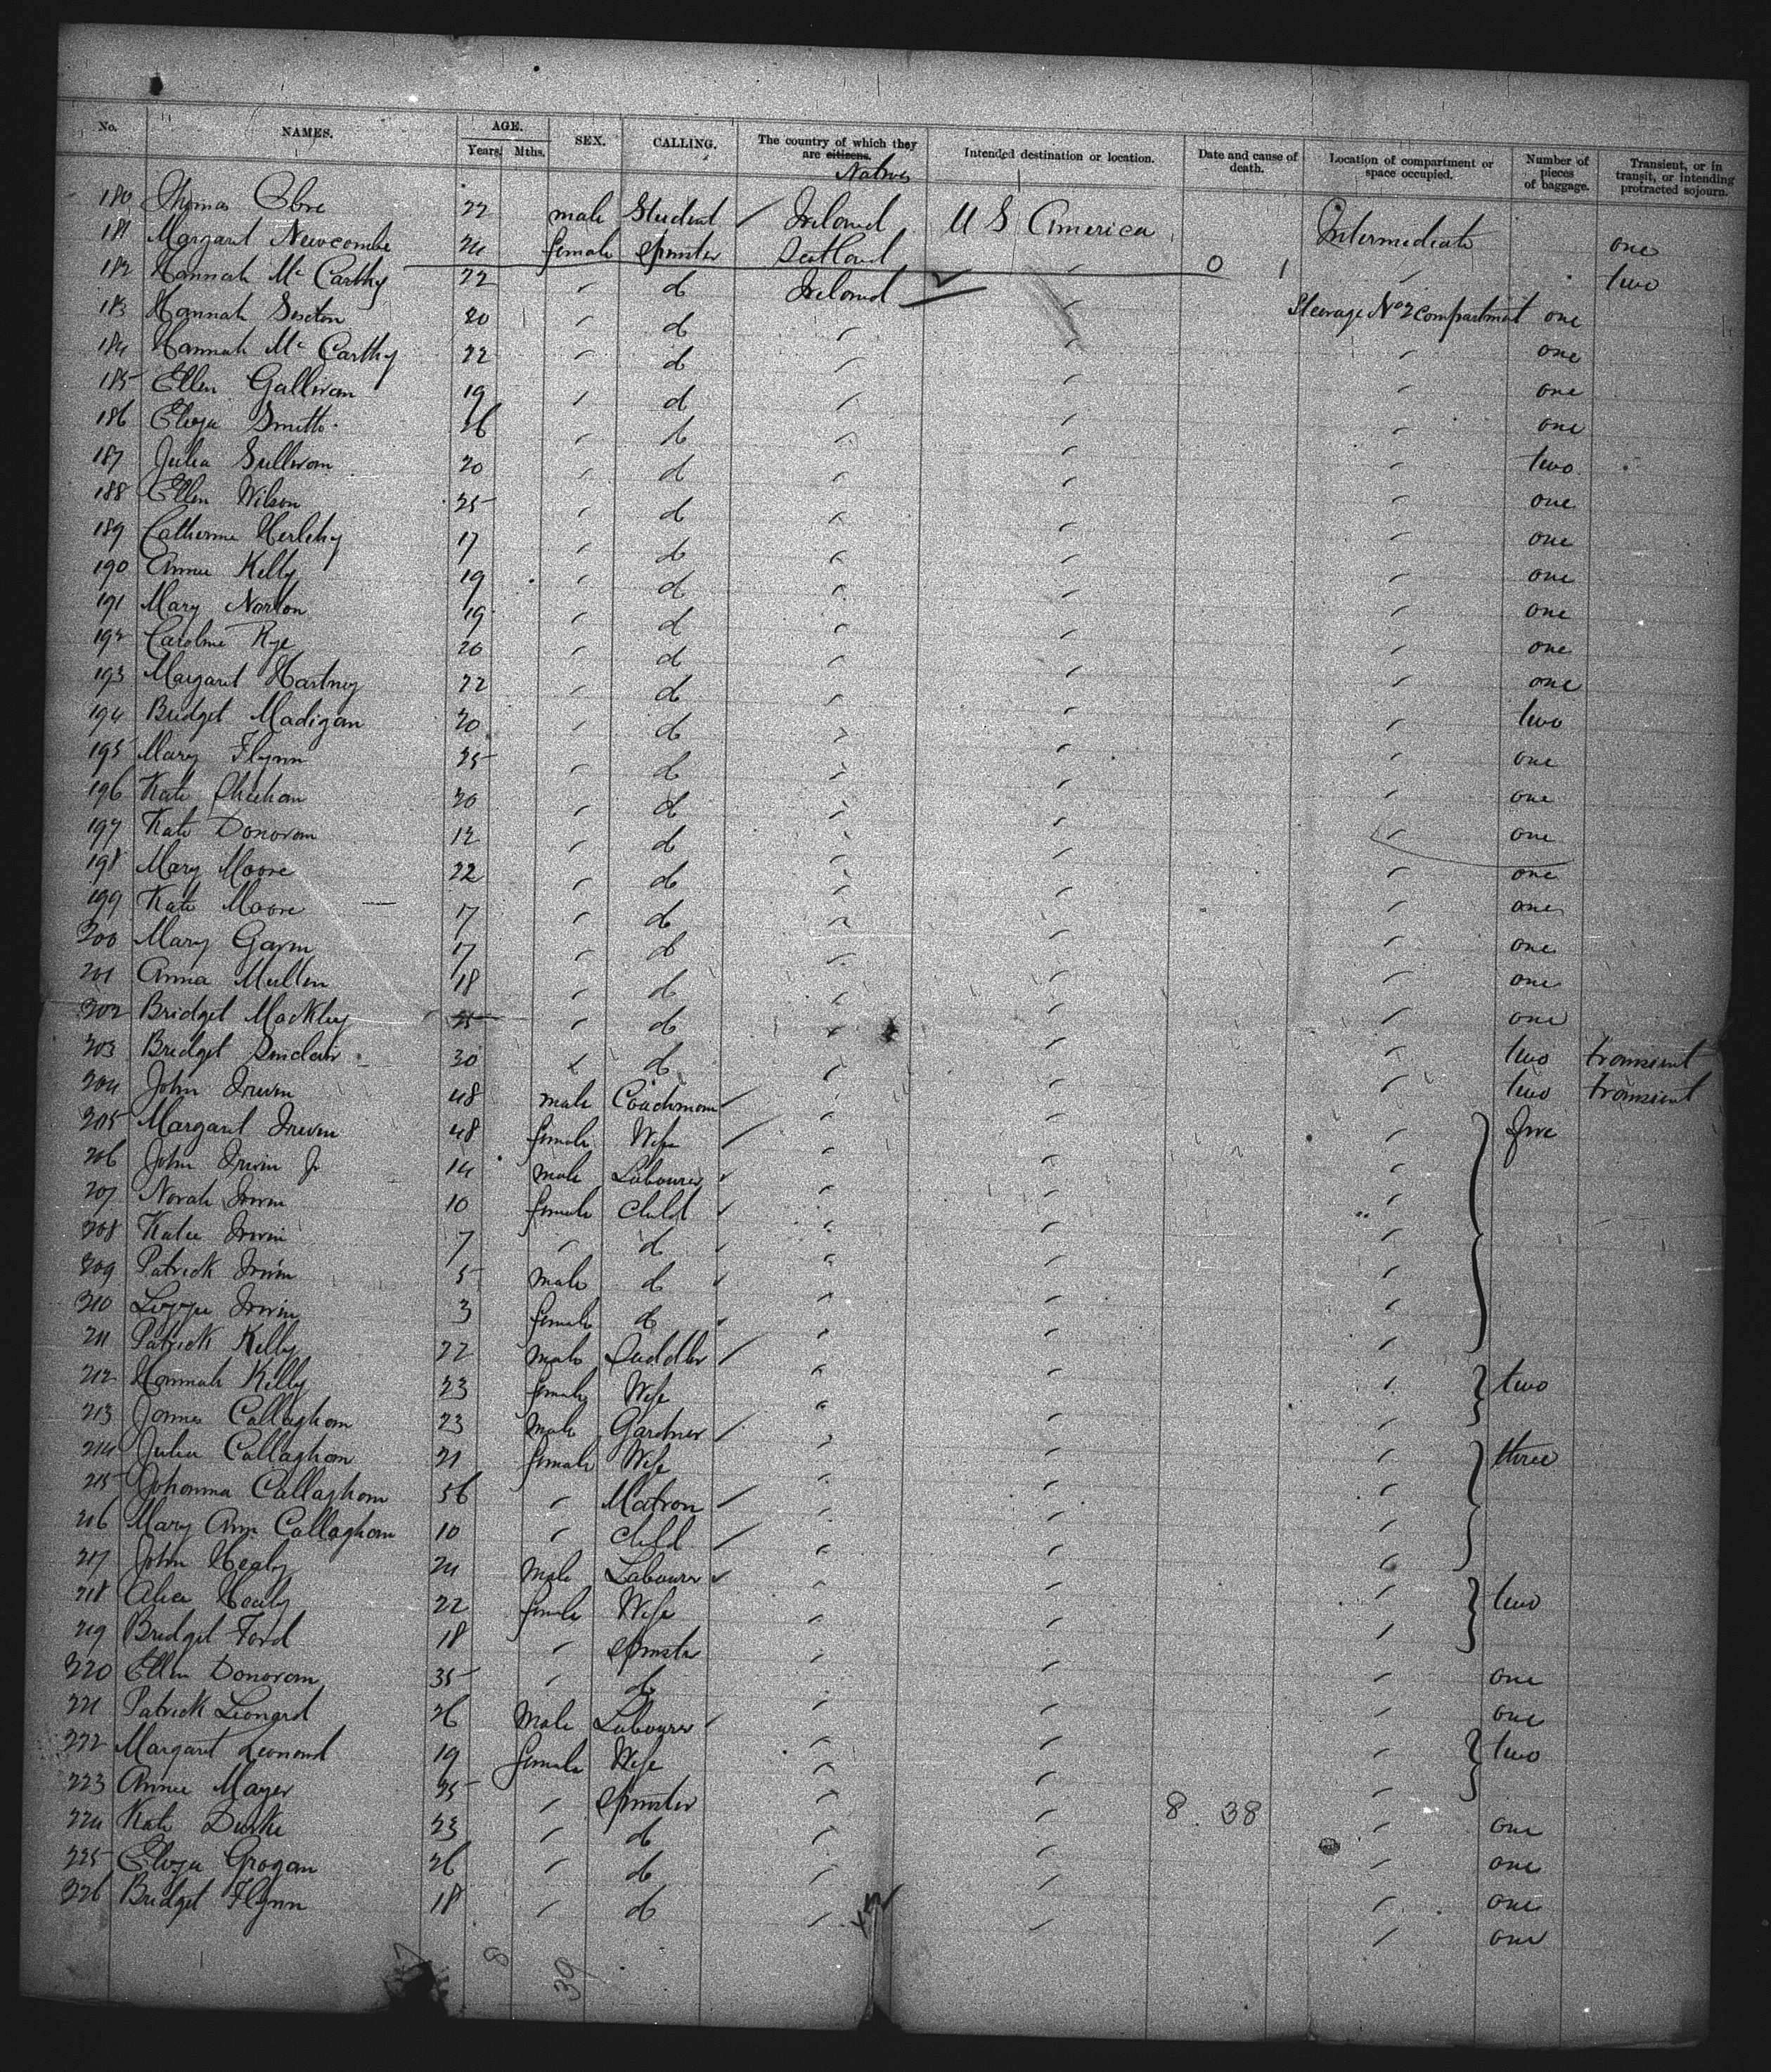 No. NAMES. AGE. Years. Mths. SEX. CALLING. The country of which they are citizens. Natives Intended destination or location. Date and cause of death. Location of compartment or space occupied. Number of pieces of baggage. Transient, or in transit, or intending protracted sojourn.
180 Thomas 22 male Student / Ireland U S America Intermediate one
181 Margaret Newcombe 24 female Spinster Scotland " 0 1 " two
182 Hannah Mc Carthy 22 " do Ireland " Steerage No 2 compartment one
183 Hannah Sexton 20 " do " " " one
184 Hannah Mc Carthy 22 " do " " " one
185 Ellen Gallivan 19 " do " " " one
186 Eliza Smith 26 " do " " " two
187 Julia Sullivan 20 " do " " " one
188 Ellen Wilson 25 " do " " " one
189 Catherine Herlihy 17 " do " " " one
190 Annie Kelly 19 " do " " " one
191 Mary Norton 19 " do " " " one
192 Caroline Rye 20 " do " " " one
193 Margaret Hartney 22 " do " " " two
194 Bridget Madigan 20 " do " " " one
195 Mary Flynn 25 " do " " " one
196 Kate Sheehan 20 " do " " " one
197 Kate Donovan 12 " do " " " one
198 Mary Moore 22 " do " " " one
199 Kate Moore 17 " do " " " one
200 Mary Gavin 17 " do " " " one
201 Anna Mullen 18 " do " " " one
202 Bridget Mackley 25 " do " " " two transient
203 Bridget Sinclair 30 " do " " " two transient
204 John Irwin 48 male Coachman " " " five
205 Margaret Irwin 48 female Wife " " "
206 John Irwin Jr 14 male Labourer " " "
207 Norah Irwin 10 female Child " " "
208 Katie Irwin 7 " do " " "
209 Patrick Irwin 5 male do " " "
210 Lizzie Irwin 3 female do " " "
211 Patrick Kelly 22 male Saddler " " " two
212 Hannah Kelly 23 female Wife " " "
213 James Callaghan 23 male Gardner " " " three
214 Julia Callaghan 21 female Wife " " "
215 Johanna Callaghan 56 " Matron " " "
216 Mary Ann Callaghan 10 " Child " " "
217 John Healy 24 male Labourer " " " two
218 Alice Healy 22 female Wife " " "
219 Bridget Ford 18 " Spinster " " " one
220 Ellen Donovan 35 " do " " " one
221 Patrick Leonard 26 Male Labourer " " " two
222 Margaret Leonard 19 female Wife " " "
223 Annie Mayer 25 " Spinster " " 8 38 " one
224 Kate 23 " do " " " one
225 Eliza Grogan 26 " do " " " one
226 Bridget Flynn 18 " do " " " one
8 39